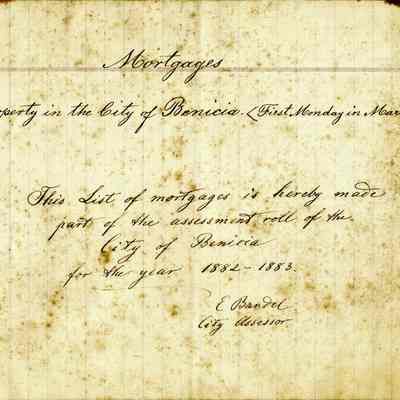 Mortgages
perty in the City of Benicia. (First Monday in Mar
This List of mortgages is hereby made
part of the assessment roll of the
City of Benicia
for the year 1882-1883.
E Bandel
City Assessor